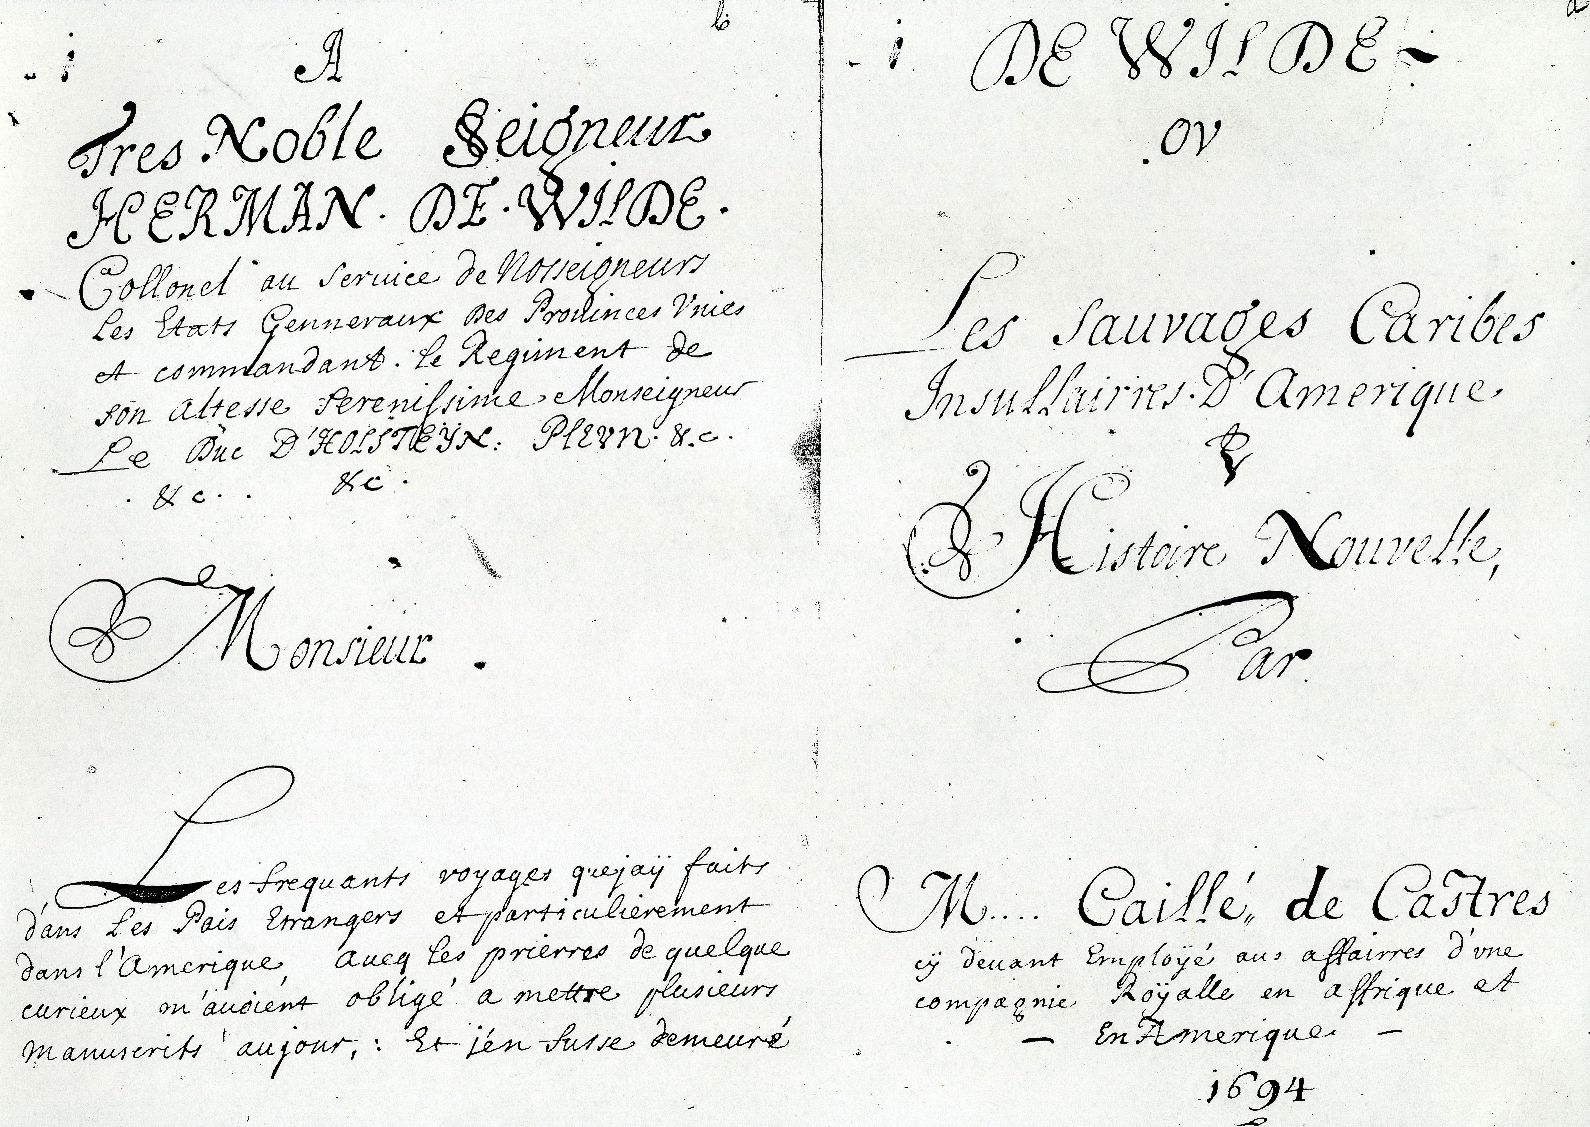 A
Tres Noble Seigneur
HERMAN. DE. WILDE.
Collonel au service de Nosseigneurs
Les Etats Genneraux Des Provinces Vnies
et commandant. le Regiment de
son altesse serenissime Monseigneur
Le Duc D'HOLSTEYN: PLEVN. &.c.
. &c. . &c.
Monsieur.
Les frequants voyages quejaÿ faits
dans Les Pais Etrangers et particulierement
dans l'Amerique, aueq les prierres de quelque
curieux m'auoient obligé a mettre plusieurs
Manuscrits aujour,: Et j'en fusse demeuré
DE WILDE
OV
Les Sauvages Caribes
Insullairres. D'Amerique
Histoire Nouvelle,
Par
M.... Caillé,, de Castres
cÿ deuant Employé aus affairres d'vne
compagnie Roÿalle en affrique et
— En Amerique —
1694